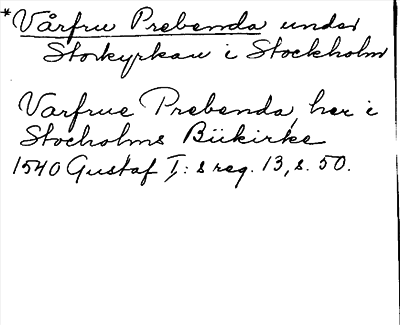 *Vårfru Prebenda under
Storkyrkan i Stockholm
Varfrue Prebenda, her i
Stocholms Bükirke
1540 Gustaf I:s reg. 13, s. 50.